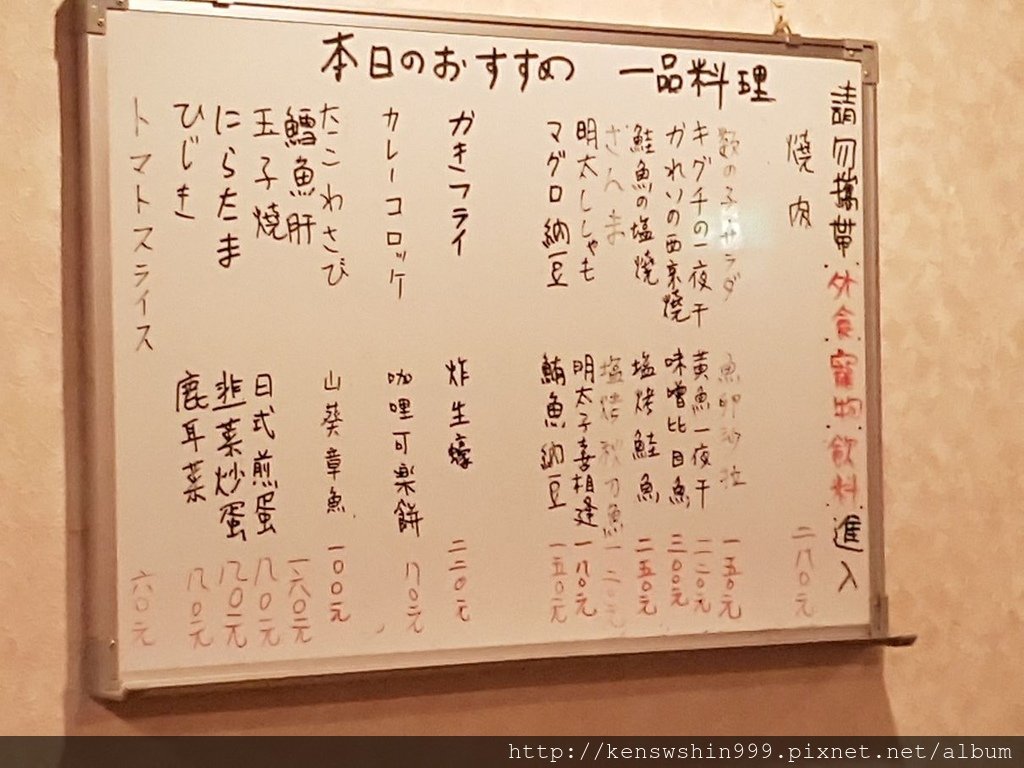 本日のおすすめ 一品料理
請勿攜帶外食寵物飲料進入
燒肉 二八〇元
数の子サラダ 魚卵沙拉 一五〇元
キグチの一夜干 黃魚一夜干 二二〇元
かれいの西京燒 味噌比目魚 三〇〇元
鮭魚の塩燒 塩烤鮭魚 二五〇元
さんま 塩烤秋刀魚 一二〇元
明太ししゃも 明太子喜相逢 一八〇元
マグロ納豆 鮪魚納豆 一五〇元
かきフライ 炸生蠔 二二〇元
カレーコロッケ 咖哩可樂餅 八〇元
たこわさび 山葵章魚 一〇〇元
鱈魚肝 一六〇元
玉子燒 日式煎蛋 八〇元
にらたま 韭菜炒蛋 八〇元
ひじき 鹿耳菜 八〇元
トマトスライス 六〇元
http://kenswshin999.pixnet.net/album